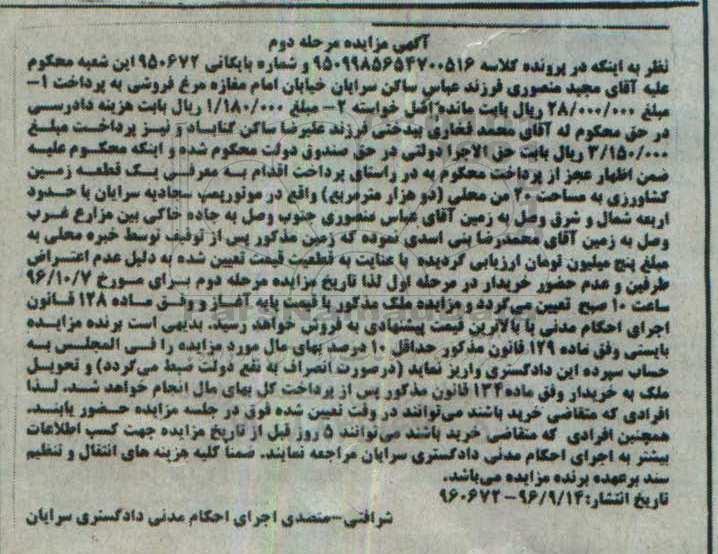 آگهی مزایده مرحله دوم
نظر به اینکه در پرونده کلاسه ۹۵۰۹۹۸۵۶۵۴۷۰۰۵۱۶ و شماره بایگانی ۹۵۰۶۷۲ این شعبه محکوم
علیه آقای مجید منصوری فرزند عباس ساکن سرایان خیابان امام مغازه مرغ فروشی به پرداخت ۱-
مبلغ ۲۸/۰۰۰/۰۰۰ ریال بابت مانده اصل خواسته ۲- مبلغ ۱/۱۸۰/۰۰۰ ریال بابت هزینه دادرسی
در حق محکوم له آقای محمد فخاری بیدختی فرزند علیرضا ساکن گناباد و نیز پرداخت مبلغ
۳/۱۵۰/۰۰۰ ریال بابت حق الاجرا دولتی در حق صندوق دولت محکوم شده و اینکه محکوم علیه
ضمن اظهار عجز از پرداخت محکوم به در راستای پرداخت اقدام به معرفی یک قطعه زمین
کشاورزی به مساحت ۲۰ من محلی (دو هزار مترمربع) واقع در موتورپمپ سجادیه سرایان با حدود
اربعه شمال و شرق وصل به زمین آقای عباس منصوری جنوب وصل به جاده خاکی بین مزارع غرب
وصل به زمین آقای محمدرضا بنی اسدی نموده که زمین مذکور پس از توقیف توسط خبره محلی به
مبلغ پنج میلیون تومان ارزیابی گردیده با عنایت به قطعیت قیمت تعیین شده به دلیل عدم اعتراض
طرفین و عدم حضور خریدار در مرحله اول لذا تاریخ مزایده مرحله دوم برای مورخ ۹۶/۱۰/۷
ساعت ۱۰ صبح تعیین می‌گردد و مزایده ملک مذکور با قیمت پایه آغاز و وفق ماده ۱۲۸ قانون
اجرای احکام مدنی با بالاترین قیمت پیشنهادی به فروش خواهد رسید. بدیهی است برنده مزایده
بایستی وفق ماده ۱۲۹ قانون مذکور حداقل ۱۰ درصد بهای مال مورد مزایده را فی المجلس به
حساب سپرده این دادگستری واریز نماید (درصورت انصراف به نفع دولت ضبط می‌گردد) و تحویل
ملک به خریدار وفق ماده۱۳۴ قانون مذکور پس از پرداخت کل بهای مال انجام خواهد شد. لذا
افرادی که متقاضی خرید باشند می‌توانند در وقت تعیین شده فوق در جلسه مزایده حضور یابند.
همچنین افرادی که متقاضی خرید باشند می‌توانند ۵ روز قبل از تاریخ مزایده جهت کسب اطلاعات
بیشتر به اجرای احکام مدنی دادگستری سرایان مراجعه نمایند. ضمناً کلیه هزینه های انتقال و تنظیم
سند برعهده برنده مزایده می‌باشد.
تاریخ انتشار:۹۶/۹/۱۴- ۹۶۰۶۷۲
شرافتی-متصدی اجرای احکام مدنی دادگستری سرایان